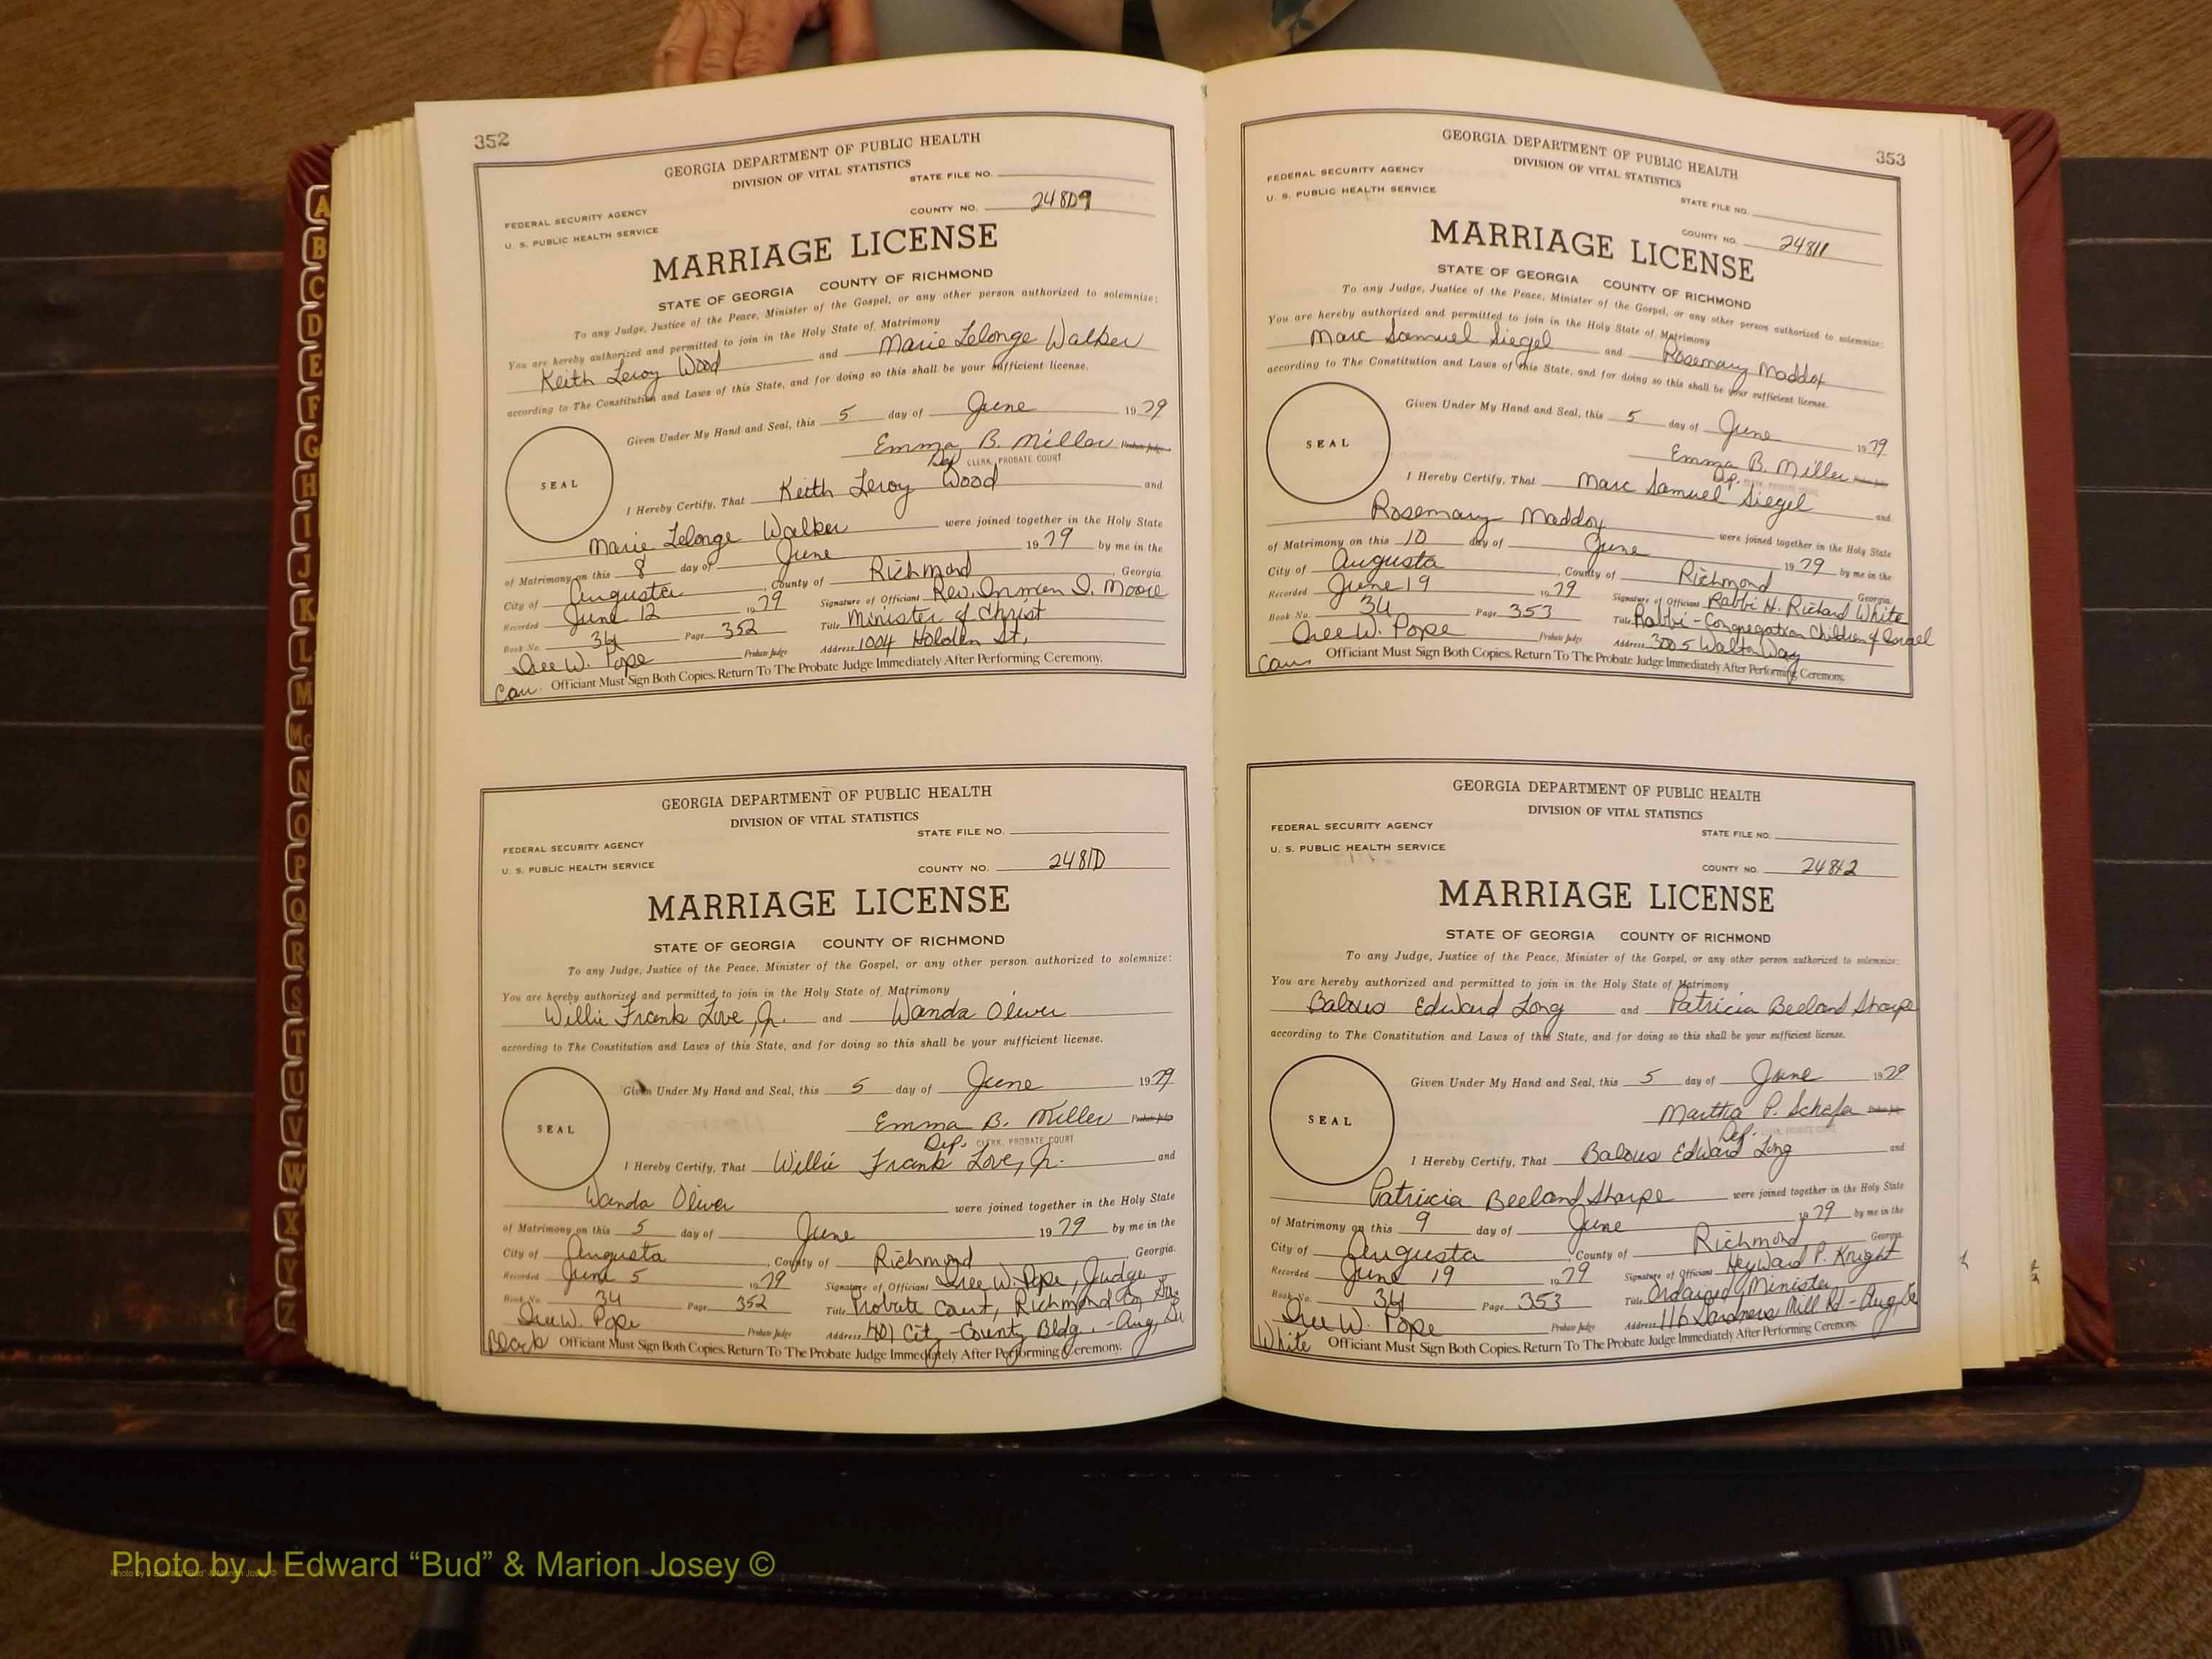 352
GEORGIA DEPARTMENT OF PUBLIC HEALTH
DIVISION OF VITAL STATISTICS
STATE FILE NO.
FEDERAL SECURITY AGENCY
COUNTY NO. 24809
U. S. PUBLIC HEALTH SERVICE
MARRIAGE LICENSE
STATE OF GEORGIA COUNTY OF RICHMOND
To any Judge, Justice of the Peace, Minister of the Gospel, or any other person authorized to solemnize:
You are hereby authorized and permitted to join in the Holy State of Matrimony
Keith Leroy Wood and Marie Lelonge Walker
according to The Constitution and Laws of this State, and for doing so this shall be your sufficient license.
Given Under My Hand and Seal, this 5 day of June 1979
Emma B. Miller Probate Judge
Dep. CLERK, PROBATE COURT
SEAL
I Hereby Certify, That Keith Leroy Wood and
Marie Lelonge Walker were joined together in the Holy State
of Matrimony on this 8 day of June 1979 by me in the
City of Augusta, County of Richmond, Georgia.
Recorded June 12 1979 Signature of Officiant Rev. Inman I. Moore
Book No. 34 Page 352 Title Minister of Christ
W. Pope Probate Judge Address 1004 Holden St,
Cau. Officiant Must Sign Both Copies. Return To The Probate Judge Immediately After Performing Ceremony.
GEORGIA DEPARTMENT OF PUBLIC HEALTH
DIVISION OF VITAL STATISTICS
STATE FILE NO.
FEDERAL SECURITY AGENCY
U. S. PUBLIC HEALTH SERVICE
COUNTY NO. 24810
MARRIAGE LICENSE
STATE OF GEORGIA COUNTY OF RICHMOND
To any Judge, Justice of the Peace, Minister of the Gospel, or any other person authorized to solemnize:
You are hereby authorized and permitted to join in the Holy State of Matrimony
Willie Frank Love, Jr. and Wanda Oliver
according to The Constitution and Laws of this State, and for doing so this shall be your sufficient license.
Given Under My Hand and Seal, this 5 day of June 1979
Emma B. Miller Probate Judge
Dep. CLERK, PROBATE COURT
SEAL
I Hereby Certify, That Willie Frank Love, Jr. and
Wanda Oliver were joined together in the Holy State
of Matrimony on this 5 day of June 1979 by me in the
City of Augusta, County of Richmond, Georgia.
Recorded June 5 1979 Signature of Officiant W. Pope, Judge
Book No. 34 Page 352 Title Probate Court, Richmond Co. Ga.
W. Pope Probate Judge Address 401 City-County Bldg. - Aug, Ga
Black Officiant Must Sign Both Copies. Return To The Probate Judge Immediately After Performing Ceremony.
353
GEORGIA DEPARTMENT OF PUBLIC HEALTH
DIVISION OF VITAL STATISTICS
FEDERAL SECURITY AGENCY
U. S. PUBLIC HEALTH SERVICE
STATE FILE NO.
COUNTY NO. 24811
MARRIAGE LICENSE
STATE OF GEORGIA COUNTY OF RICHMOND
To any Judge, Justice of the Peace, Minister of the Gospel, or any other person authorized to solemnize:
You are hereby authorized and permitted to join in the Holy State of Matrimony
Marc Samuel Siegel and Rosemary Maddox
according to The Constitution and Laws of this State, and for doing so this shall be your sufficient license.
Given Under My Hand and Seal, this 5 day of June 1979
Emma B. Miller
Dp.
SEAL
I Hereby Certify, That Marc Samuel Siegel and
Rosemary Maddox were joined together in the Holy State
of Matrimony on this 10 day of June 1979 by me in the
City of Augusta, County of Richmond, Georgia.
Recorded June 19 1979 Signature of Officiant Rabbi H. Richard White
Book No. 34 Page 353 Title Rabbi - Congregation Children of Israel
W. Pope Probate Judge Address 3005 Walton Way
Cau Officiant Must Sign Both Copies. Return To The Probate Judge Immediately After Performing Ceremony.
GEORGIA DEPARTMENT OF PUBLIC HEALTH
DIVISION OF VITAL STATISTICS
FEDERAL SECURITY AGENCY
STATE FILE NO.
U. S. PUBLIC HEALTH SERVICE
COUNTY NO. 24812
MARRIAGE LICENSE
STATE OF GEORGIA COUNTY OF RICHMOND
To any Judge, Justice of the Peace, Minister of the Gospel, or any other person authorized to solemnize:
You are hereby authorized and permitted to join in the Holy State of Matrimony
Balous Edward Long and Patricia Beeland Sharpe
according to The Constitution and Laws of this State, and for doing so this shall be your sufficient license.
Given Under My Hand and Seal, this 5 day of June 1979
Martha P.
Dep.
SEAL
I Hereby Certify, That Balous Edward Long and
Patricia Beeland Sharpe were joined together in the Holy State
of Matrimony on this 9 day of June 1979 by me in the
City of Augusta, County of Richmond, Georgia.
Recorded June 19 1979 Signature of Officiant Heyward P. Knight
Book No. 34 Page 353 Title Ordained Minister
W. Pope Probate Judge Address 116 Mill Rd - Aug, Ga
White Officiant Must Sign Both Copies. Return To The Probate Judge Immediately After Performing Ceremony.
A
B
C
D
E
F
G
H
I
J
K
L
M
Mc
N
O
P
Q
R
S
T
U
V
W
X
Y
Z
Photo by J Edward “Bud” & Marion Josey ©
Photo by J Edward "Bud" & Marion Josey ©